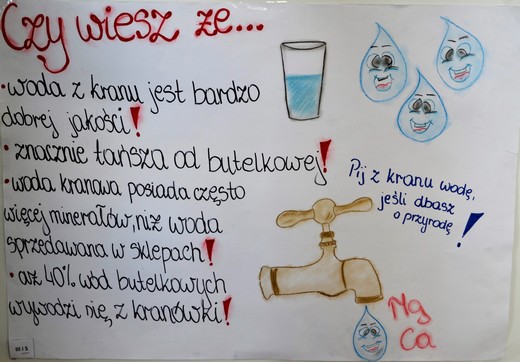 Czy wiesz że...
• woda z kranu jest bardzo
dobrej jakości!
• znacznie tańsza od butelkowej!
• woda kranowa posiada często
więcej minerałów, niż woda
sprzedawana w sklepach!
• aż 40% wód butelkowych
wywodzi się, z kranówki!
Pij z kranu wodę,
jeśli dbasz
o przyrodę!
Mg
Ca